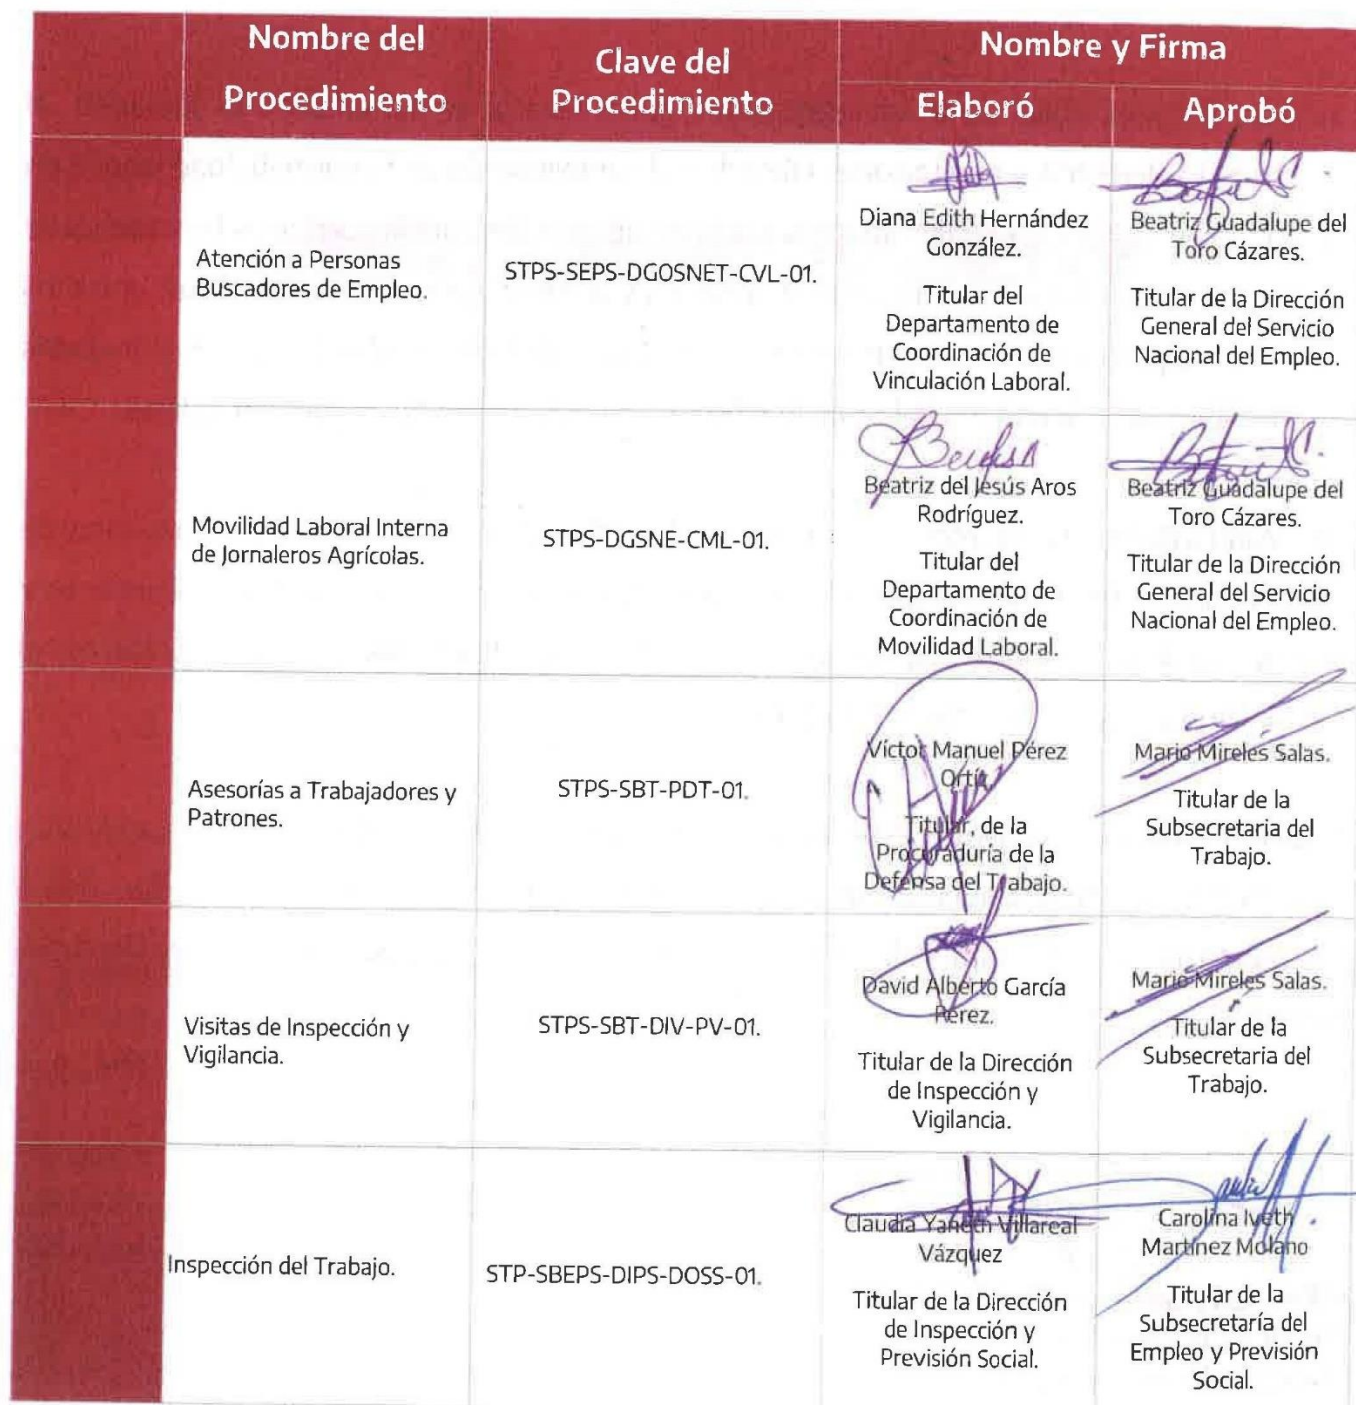 Nombre del
Procedimiento
Clave del
Procedimiento
Nombre y Firma
Elaboró
Aprobó
Atención a Personas
Buscadores de Empleo.
STPS-SEPS-DGOSNET-CVL-01.
Diana Edith Hernández
González.
Titular del
Departamento de
Coordinación de
Vinculación Laboral.
Beatriz Guadalupe del
Toro Cázares.
Titular de la Dirección
General del Servicio
Nacional del Empleo.
Movilidad Laboral Interna
de Jornaleros Agrícolas.
STPS-DGSNE-CML-01.
Beatriz del Jesús Aros
Rodríguez.
Titular del
Departamento de
Coordinación de
Movilidad Laboral.
Beatriz Guadalupe del
Toro Cázares.
Titular de la Dirección
General del Servicio
Nacional del Empleo.
Asesorías a Trabajadores y
Patrones.
STPS-SBT-PDT-01.
Víctor Manuel Pérez
Ortíz.
Titular, de la
Procuraduría de la
Defensa del Trabajo.
Mario Mireles Salas.
Titular de la
Subsecretaria del
Trabajo.
Visitas de Inspección y
Vigilancia.
STPS-SBT-DIV-PV-01.
David Alberto García
Pérez.
Titular de la Dirección
de Inspección y
Vigilancia.
Mario Mireles Salas.
Titular de la
Subsecretaria del
Trabajo.
Inspección del Trabajo.
STP-SBEPS-DIPS-DOSS-01.
Claudia Yaneth Villareal
Vázquez
Titular de la Dirección
de Inspección y
Previsión Social.
Carolina Iveth
Martínez Molano
Titular de la
Subsecretaría del
Empleo y Previsión
Social.